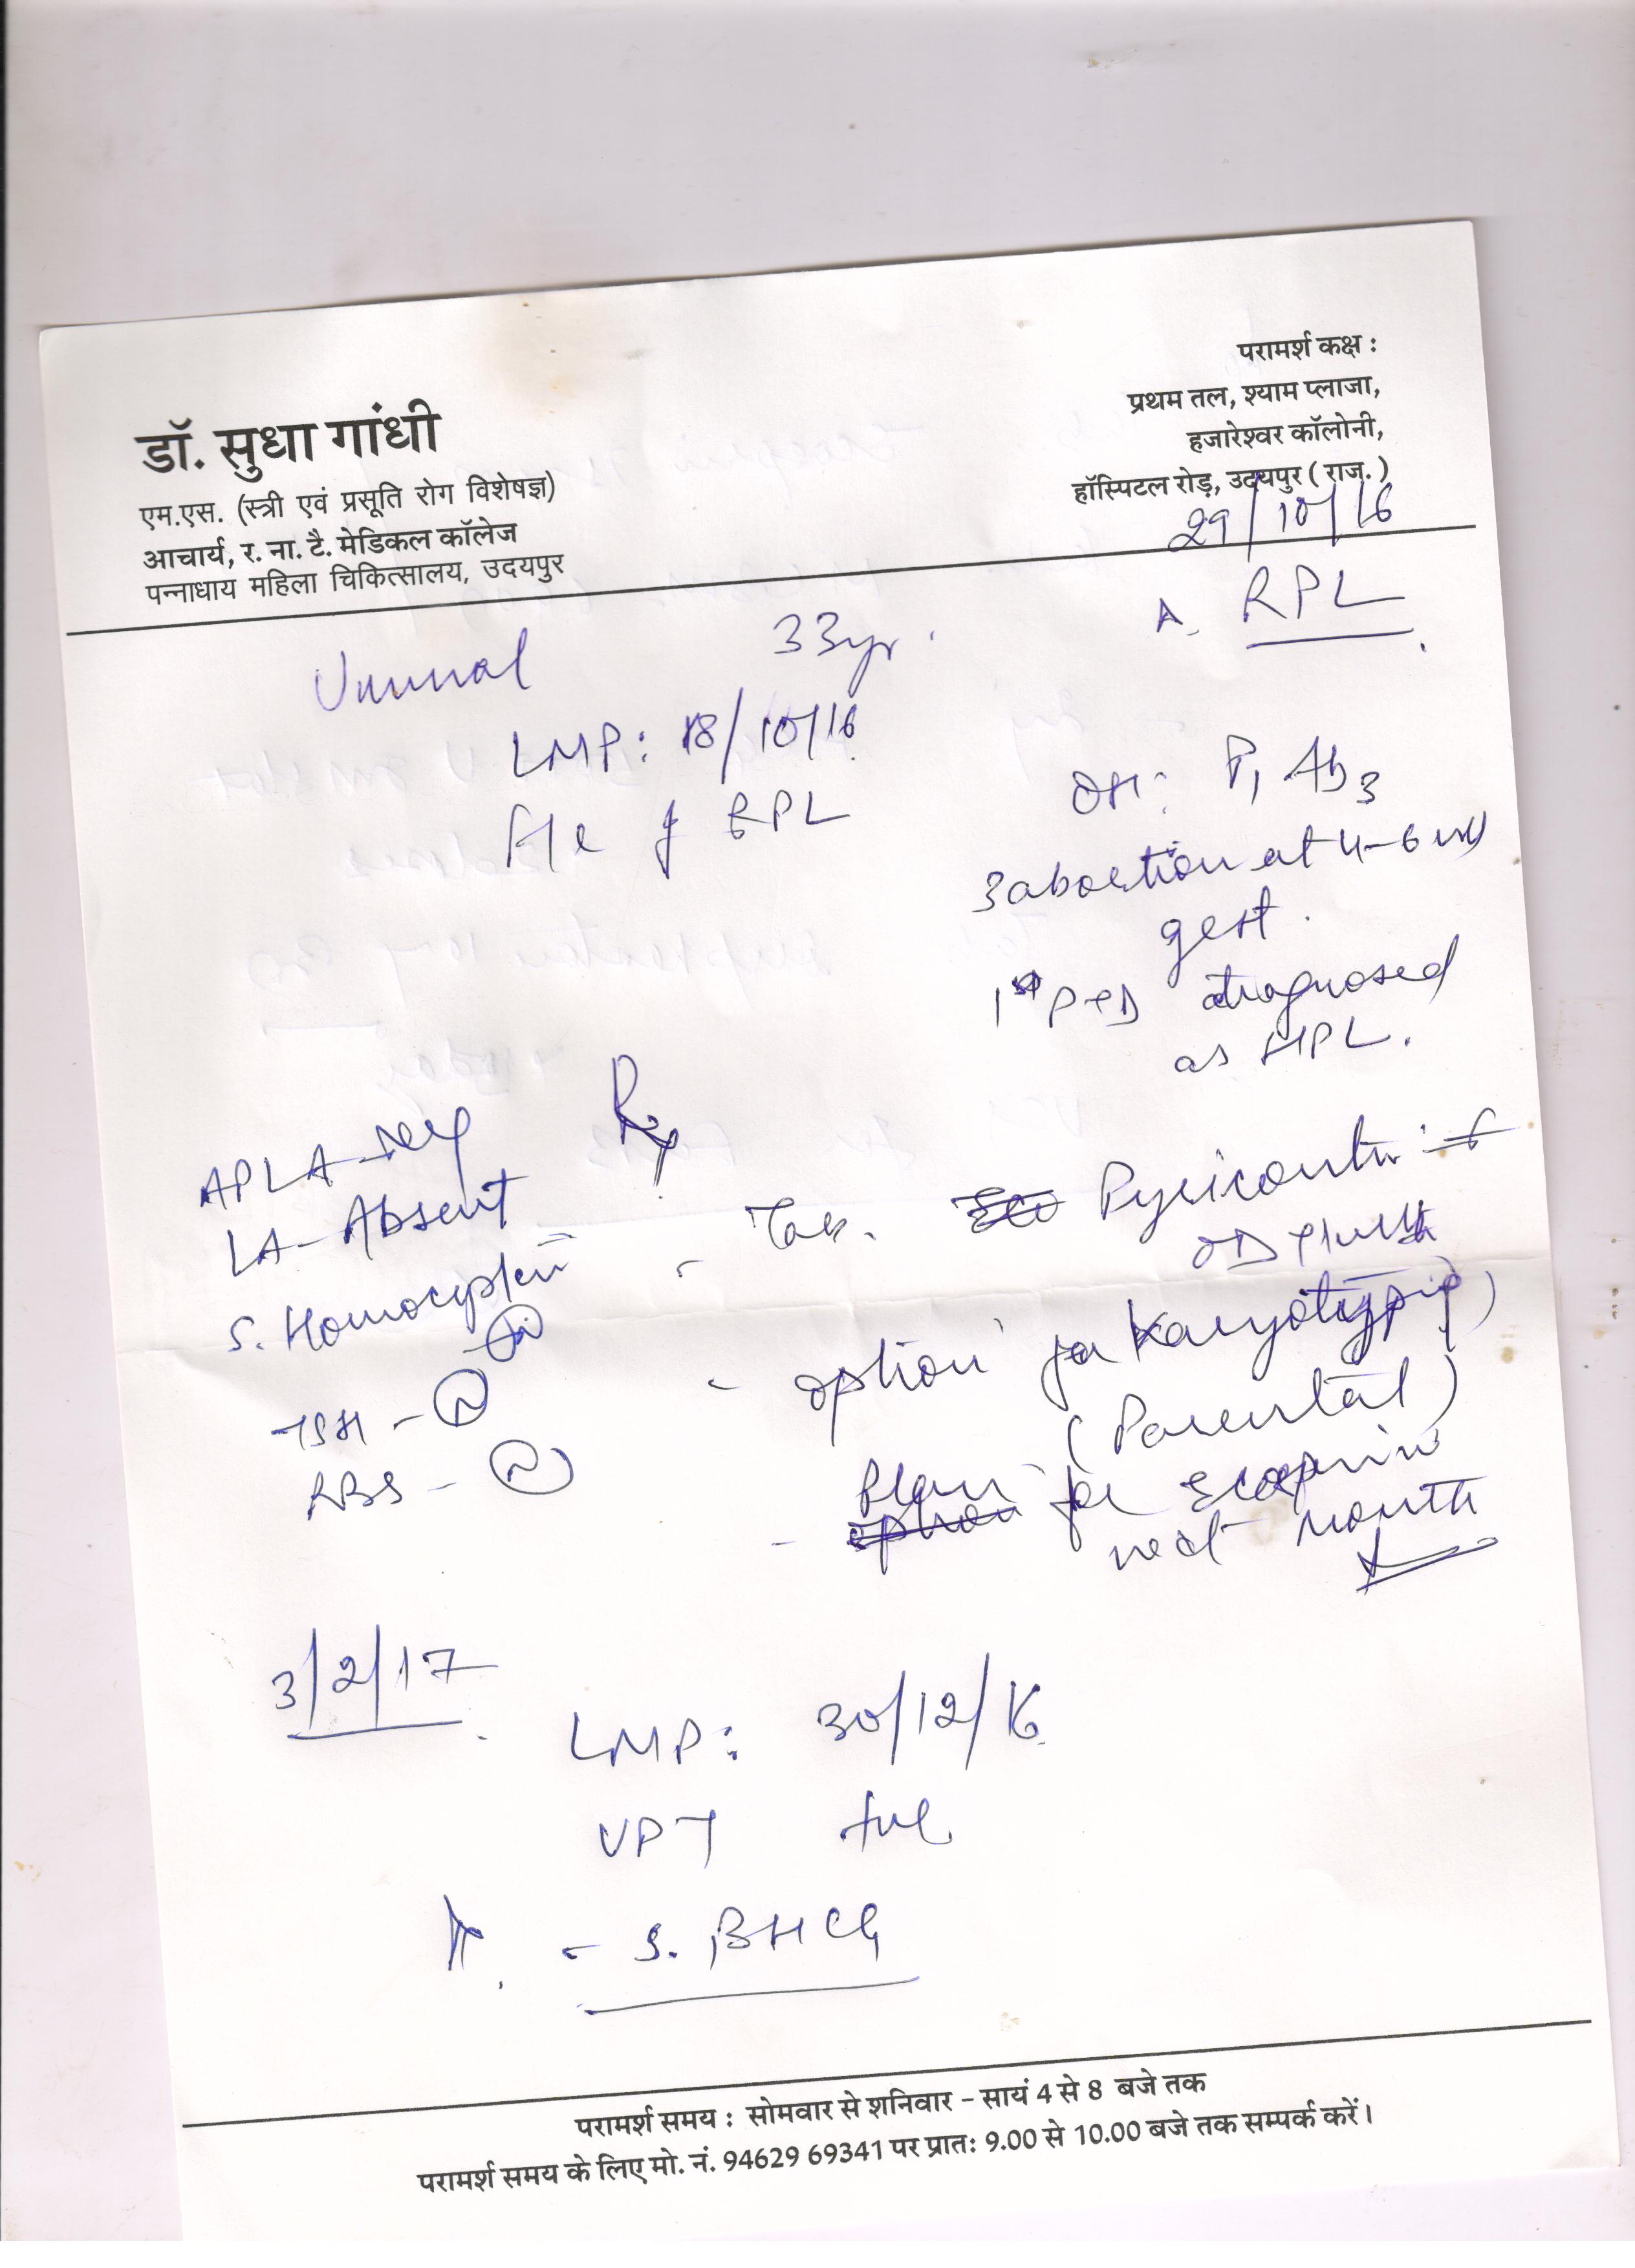 परामर्श कक्ष :
प्रथम तल, श्याम प्लाजा,
हजारेश्वर कॉलोनी,
हॉस्पिटल रोड़, उदयपुर ( राज. )
डॉ. सुधा गांधी
एम.एस. (स्त्री एवं प्रसूति रोग विशेषज्ञ)
आचार्य, र. ना. टै. मेडिकल कॉलेज
पन्नाधाय महिला चिकित्सालय, उदयपुर
29/10/16
RPL
33yr.
LMP: 18/10/16
RPL
OH: P1 Ab3
3 abortion at 4-6 wk
gest.
1st diagnosed
as
Rx
APLA - Neg
LA - Absent
S. Homocystein
TSH - N
RBS - N
- Tab.
OD
- option for Karyotyping
(Parental)
- Plan for Ecosprin
next month
3/2/17
LMP: 30/12/16
UPT +ve
- S. BHCG
परामर्श समय : सोमवार से शनिवार – सायं 4 से 8 बजे तक
परामर्श समय के लिए मो. नं. 94629 69341 पर प्रातः 9.00 से 10.00 बजे तक सम्पर्क करें।